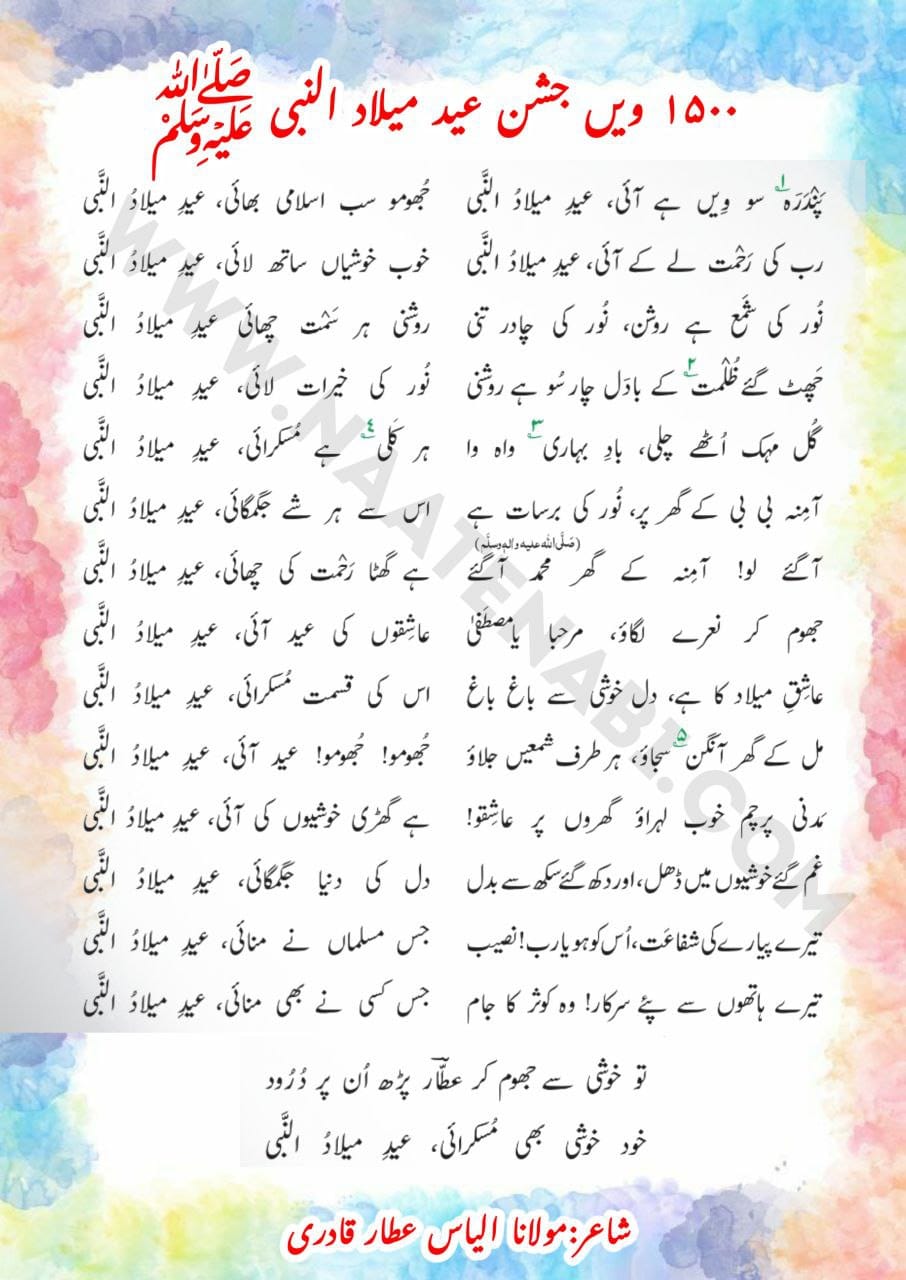 ۱۵۰۰ ویں جشن عید میلاد النبی صَلَّى اللّٰهُ عَلَيْهِ وَسَلَّمْ
پَنْدَرَہ۱ سو وِیں ہے آئی، عیدِ میلادُ النَّبی جُھومو سب اسلامی بھائی، عیدِ میلادُ النَّبی
رب کی رَحْمت لے کے آئی، عیدِ میلادُ النَّبی خوب خوشیاں ساتھ لائی، عیدِ میلادُ النَّبی
نُور کی شَمْع ہے روشن، نُور کی چادر تنی روشنی ہر سَمْت چھائی عیدِ میلادُ النَّبی
چَھٹ گئے ظُلْمت۲ کے بادَل چار سُو ہے روشنی نُور کی خیرات لائی، عیدِ میلادُ النَّبی
گُل مہک اُٹھے چلی، بادِ بہاری۳ واہ وا ہر کَلی۴ ہے مُسکرائی، عیدِ میلادُ النَّبی
آمِنہ بی بی کے گھر پر، نُور کی برسات ہے اس سے ہر شے جگمگائی، عیدِ میلادُ النَّبی
(صَلَّی اللہ علیہ واٰلہٖ وسلَّم)
آگئے لو! آمِنہ کے گھر محمد آگئے ہے گھٹا رَحْمت کی چھائی، عیدِ میلادُ النَّبی
جھوم کر نعرے لگاؤ، مرحبا یامصطَفٰی عاشِقوں کی عید آئی، عیدِ میلادُ النَّبی
عاشِقِ میلاد کا ہے، دل خوشی سے باغ باغ اس کی قسمت مُسکرائی، عیدِ میلادُ النَّبی
مل کے گھر آنگن۵ سجاؤ، ہر طرف شمعیں جلاؤ جُھومو! جُھومو! عید آئی، عیدِ میلادُ النَّبی
مَدنی پرچم خوب لہراؤ گھروں پر عاشِقو! ہے گھڑی خوشیوں کی آئی، عیدِ میلادُ النَّبی
غم گئے خوشیوں میں ڈھل، اور دکھ گئے سکھ سے بدل دل کی دنیا جگمگائی، عیدِ میلادُ النَّبی
تیرے پیارے کی شفاعَت، اُس کو ہو یارب! نصیب جس مسلماں نے منائی، عیدِ میلادُ النَّبی
تیرے ہاتھوں سے پئے سرکار! وہ کوثر کا جام جس کسی نے بھی منائی، عیدِ میلادُ النَّبی
تو خوشی سے جھوم کر عطّار پڑھ اُن پر دُرُود
خود خوشی بھی مُسکرائی، عیدِ میلادُ النَّبی
شاعر:مولانا الیاس عطار قادری
WWW.NAATENABI.COM